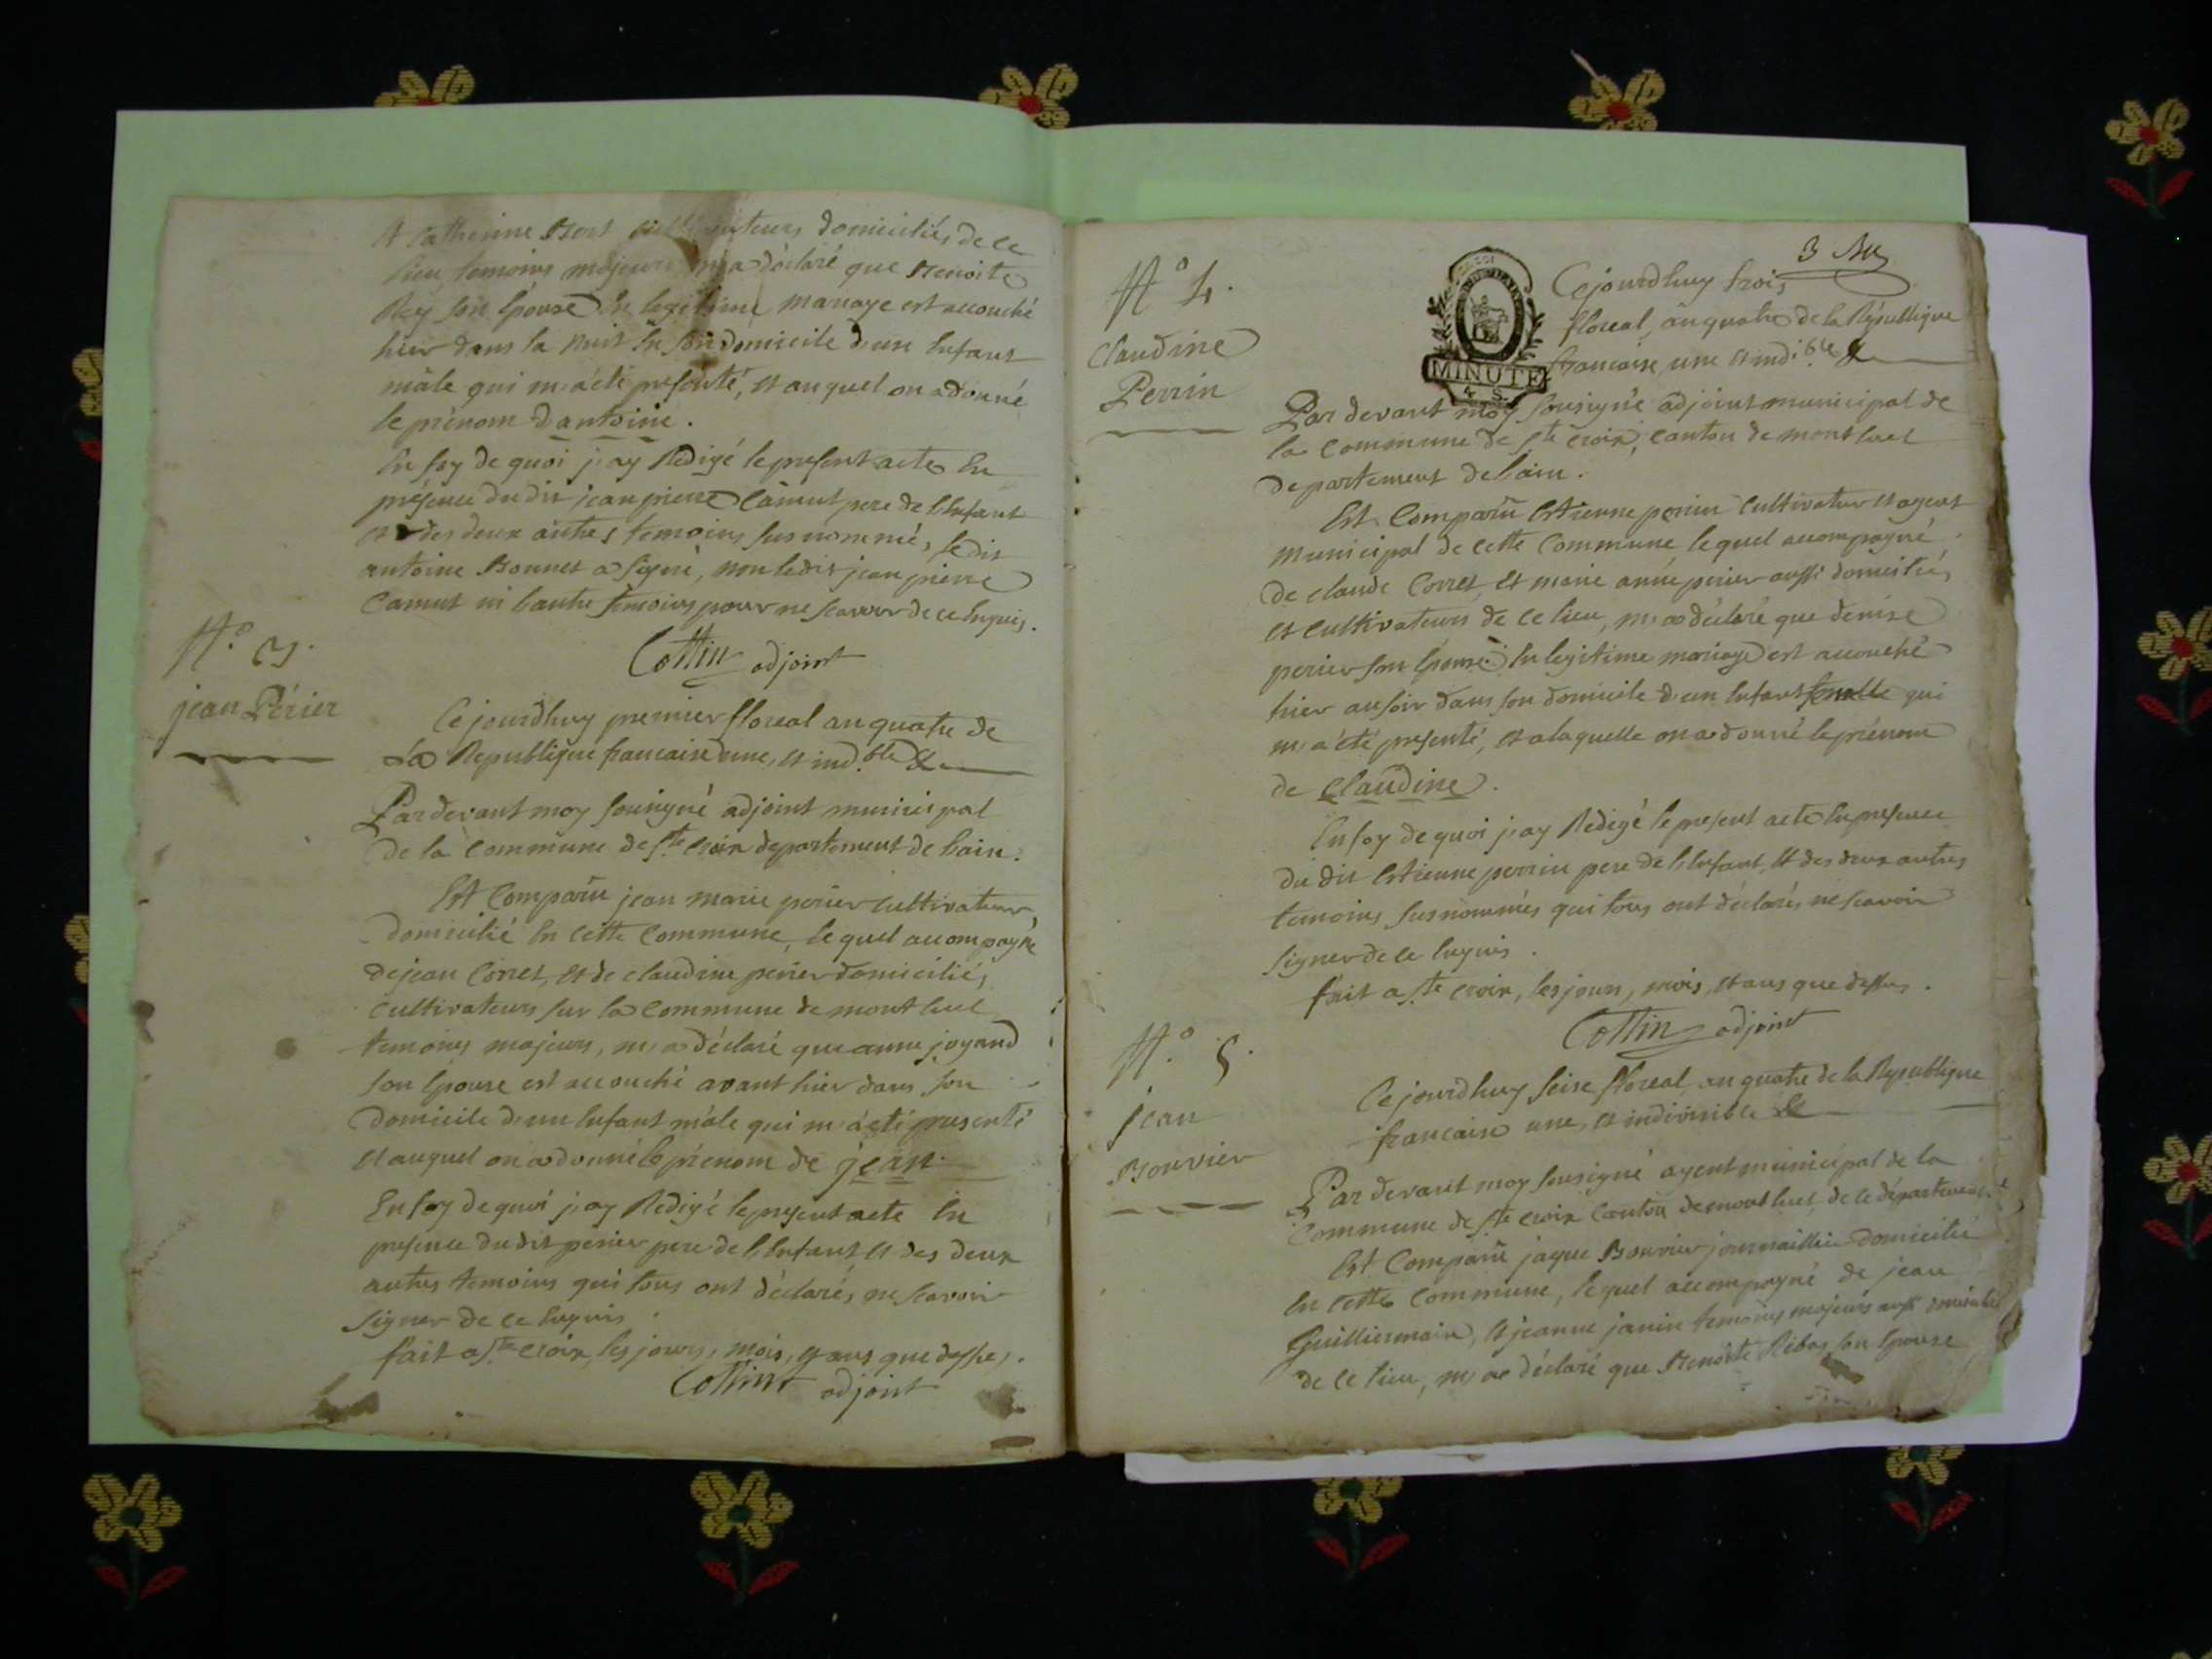 et Catherine Bort cultivateurs domiciliés de ce
lieu, temoins majeurs, m'a déclaré que Benoite
Rey son Epouse En legitime mariage est accouché
hier dans la nuit En son domicile d'une Enfant
mâle qui m'a été presenté, et auquel on a donné
le prénom d'antoine.
En foy de quoi j'ay Redigé le present acte En
présence du dit jean pierre Camut pere de l'Enfant
et des deux autres temoins susnommés, le dit
antoine Bonnet a signé, non ledit jean pierre
Camut ni l'autre temoins pour ne scavoir de ce Enquis.
Cottin adjoint
N.° 3.
jean Périer
Cejourdhuy premier floreal an quatre de
la Republique francaise une, et ind.ble &
Pardevant moy sousigné adjoint municipal
de la Commune de Ste croix departement de l'ain.
Est Comparu jean marie perier cultivateur,
domicilié En cette Commune, lequel accompagné
de jean Corret, et de claudine perier domiciliés
cultivateurs sur la Commune de montluel
temoins majeurs, m'a déclaré que anne joyand
son Epouse est accouché avant hier dans son
domicile d'un Enfant mâle qui m'a été presenté
et auquel on a donné le prénom de jean.
En foy de quoi j'ay Redigé le present acte En
presence du dit perier pere de l'Enfant, et des deux
autres temoins qui tous ont déclarés ne scavoir
signer de ce Enquis.
fait a Ste croix, les jours, mois, et ans que dessus.
Cottin adjoint
3
N° 4.
Claudine
Perrin
MINUTE
4 S.
Cejourdhuy trois
floreal, an quatre de la République
francaise, une et indi.ble &
Par devant moy sousigné adjoint municipal de
la Commune de Ste croix, canton de montluel
departement de l'ain.
Est Comparu Estienne perrin cultivateur et agent
municipal de cette Commune lequel accompagné
de claude Corret, et marie anne perier aussi domiciliés
et cultivateurs de ce lieu, m'a déclaré que denise
perier son Epouse En legitime mariage est accouché
hier au soir dans son domicile d'un Enfant femelle qui
m'a été presenté, et a laquelle on a donné le prénom
de Claudine.
En foy de quoi j'ay Redigé le present acte En presence
du dit Estienne perrin pere de l'Enfant, et des deux autres
temoins susnommés qui tous ont déclarés ne scavoir
signer de ce Enquis.
fait a Ste croix, les jours, mois, et ans que dessus.
Cottin adjoint
N.° 5.
jean
Bouvier
Cejourdhuy seise floreal an quatre de la Republique
francaise une, et indivisible &
Par devant moy sousigné agent municipal de la
Commune de Ste croix Canton de montluel, de ce département
Est Comparu jaque Bouvier journaillier domicilié
En cette Commune, lequel accompagné de jean
Guilliermain, et jeanne janin temoins majeurs aussi domiciliés
de ce lieu, m'a déclaré que Benoite Ribas son Epouse